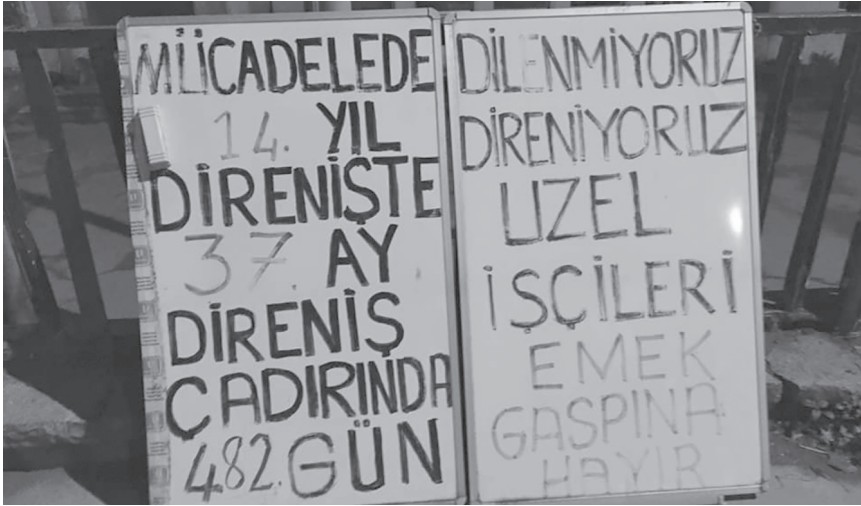 MÜCADELEDE
14. YIL
DİRENİŞTE
37. AY
DİRENİŞ
ÇADIRINDA
482. GÜN
DİLENMİYORUZ
DİRENİYORUZ
UZEL
İŞÇİLERİ
EMEK
GASPINA
HAYIR